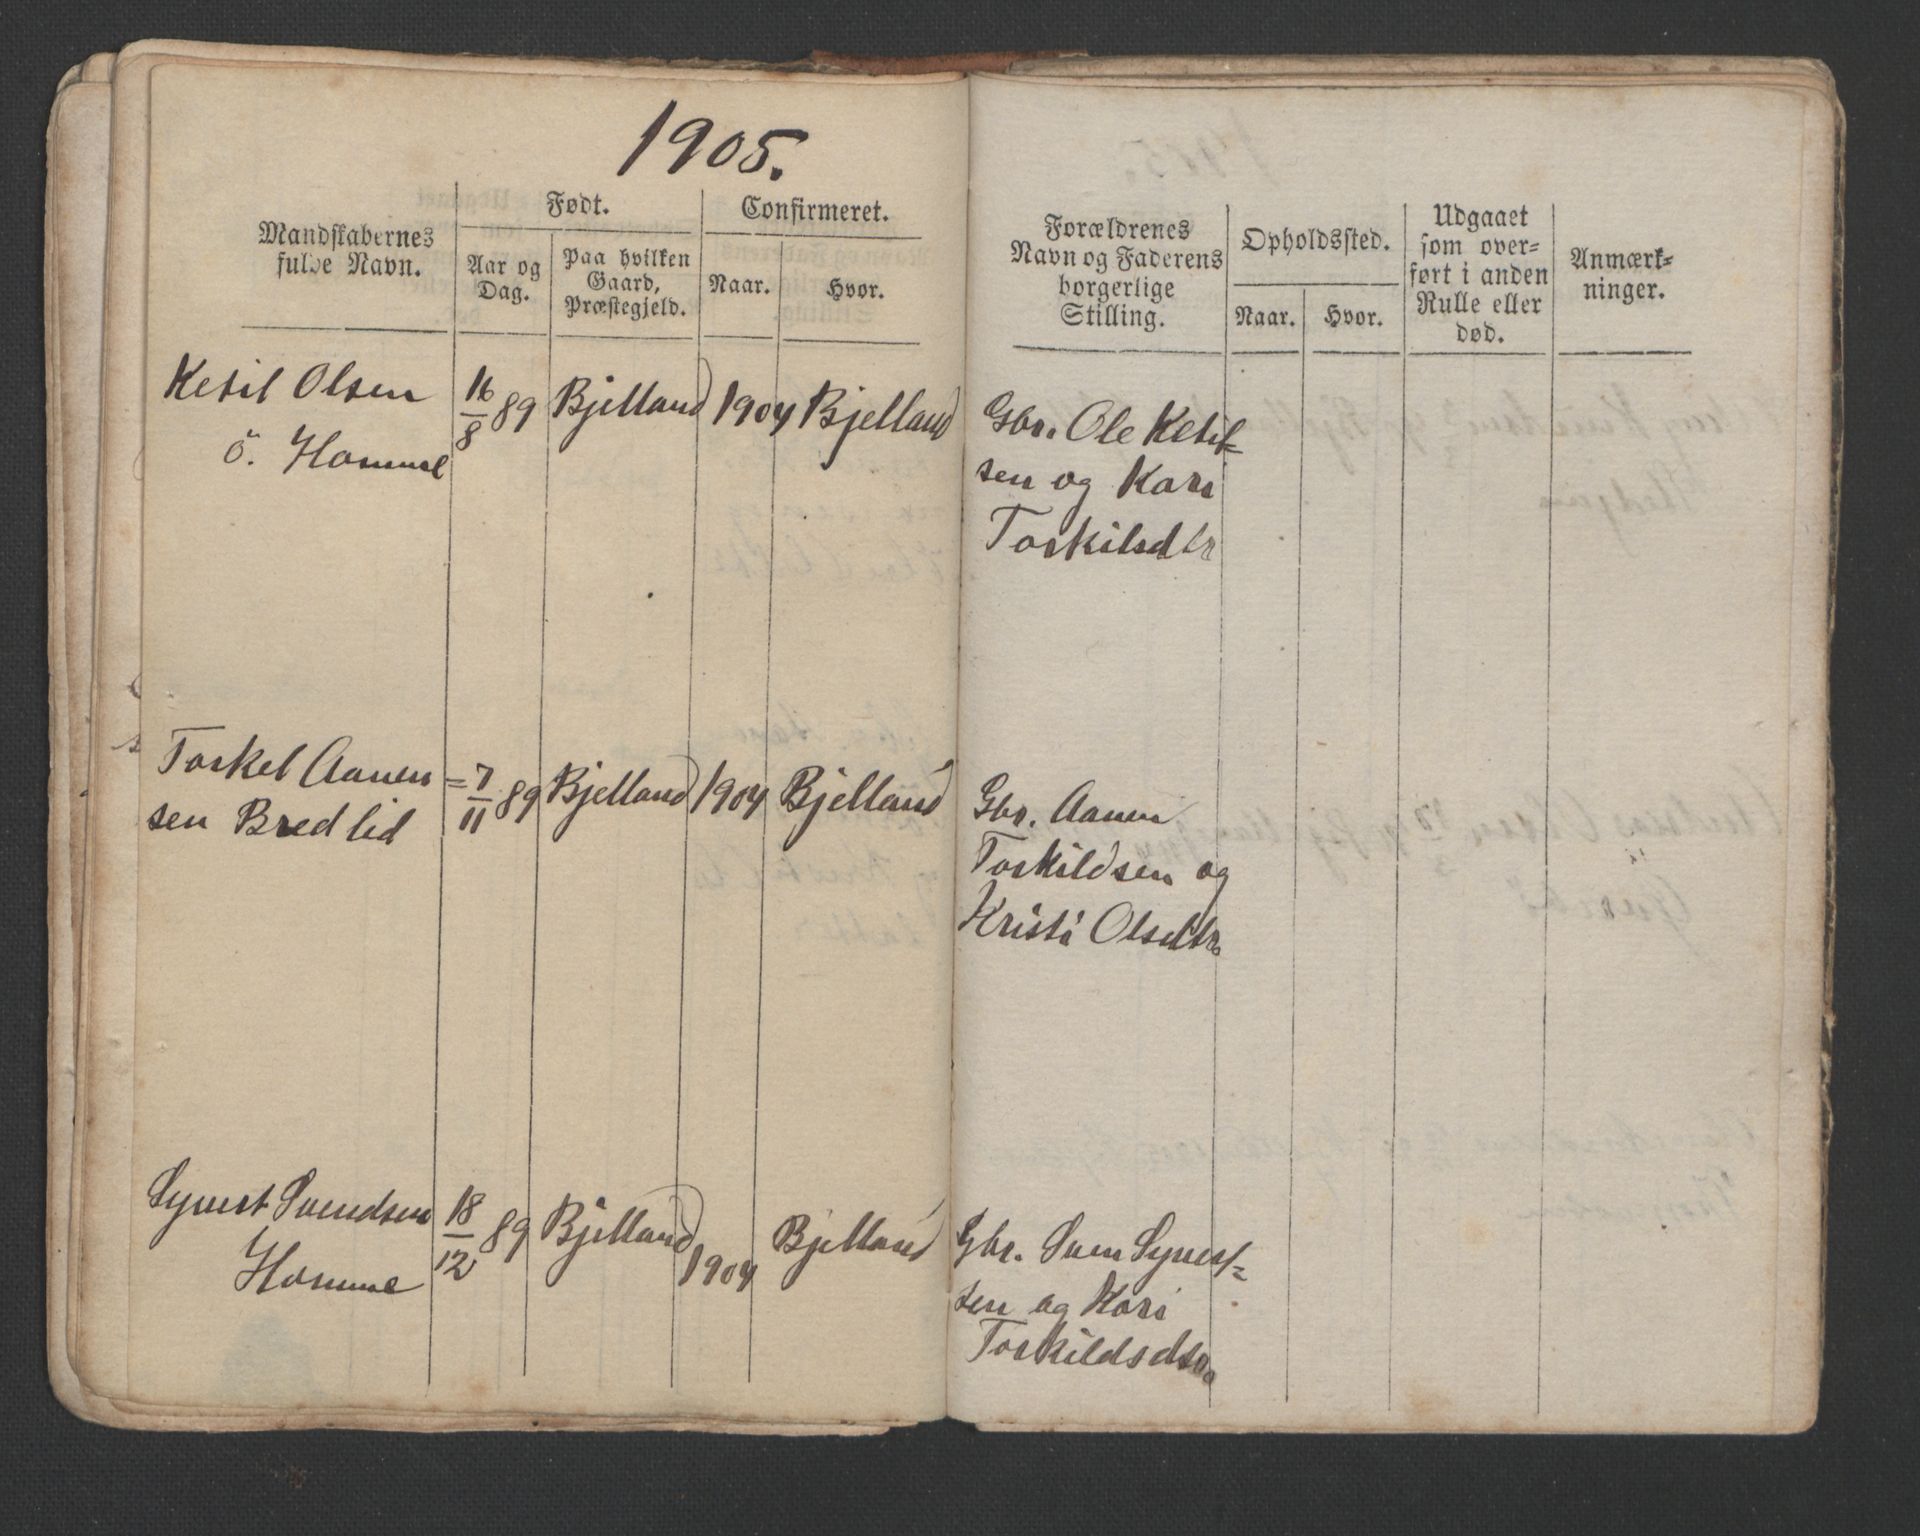 1905.
Mandskabernes
fulde Navn.
Født.
Aar og
Dag.
Paa hvilken
Gaard,
Præstegjeld.
Confirmeret.
Naar.
Hvor.
Forældrenes
Navn og Faderens
borgerlige
Stilling.
Opholdssted.
Naar.
Hvor.
Udgaaet
som over-
ført i anden
Rulle eller
død.
Anmærk-
ninger.
Ketil Olsen
ö. Homme
16/8 89
Bjelland
1904
Bjelland
Gbr. Ole Ketil-
sen og Kari
Torkilsdtr
Torkel Aanen=
sen Bredlid
7/11 89
Bjelland
1904
Bjelland
Gbr. Aanen
Torkildsen og
Kristi Olsdtr.
Syvert Svendsen
Homme
18/12 89
Bjelland
1904
Bjelland
Gbr. Sven Syvert=
sen og Kari
Torkildsdtr.